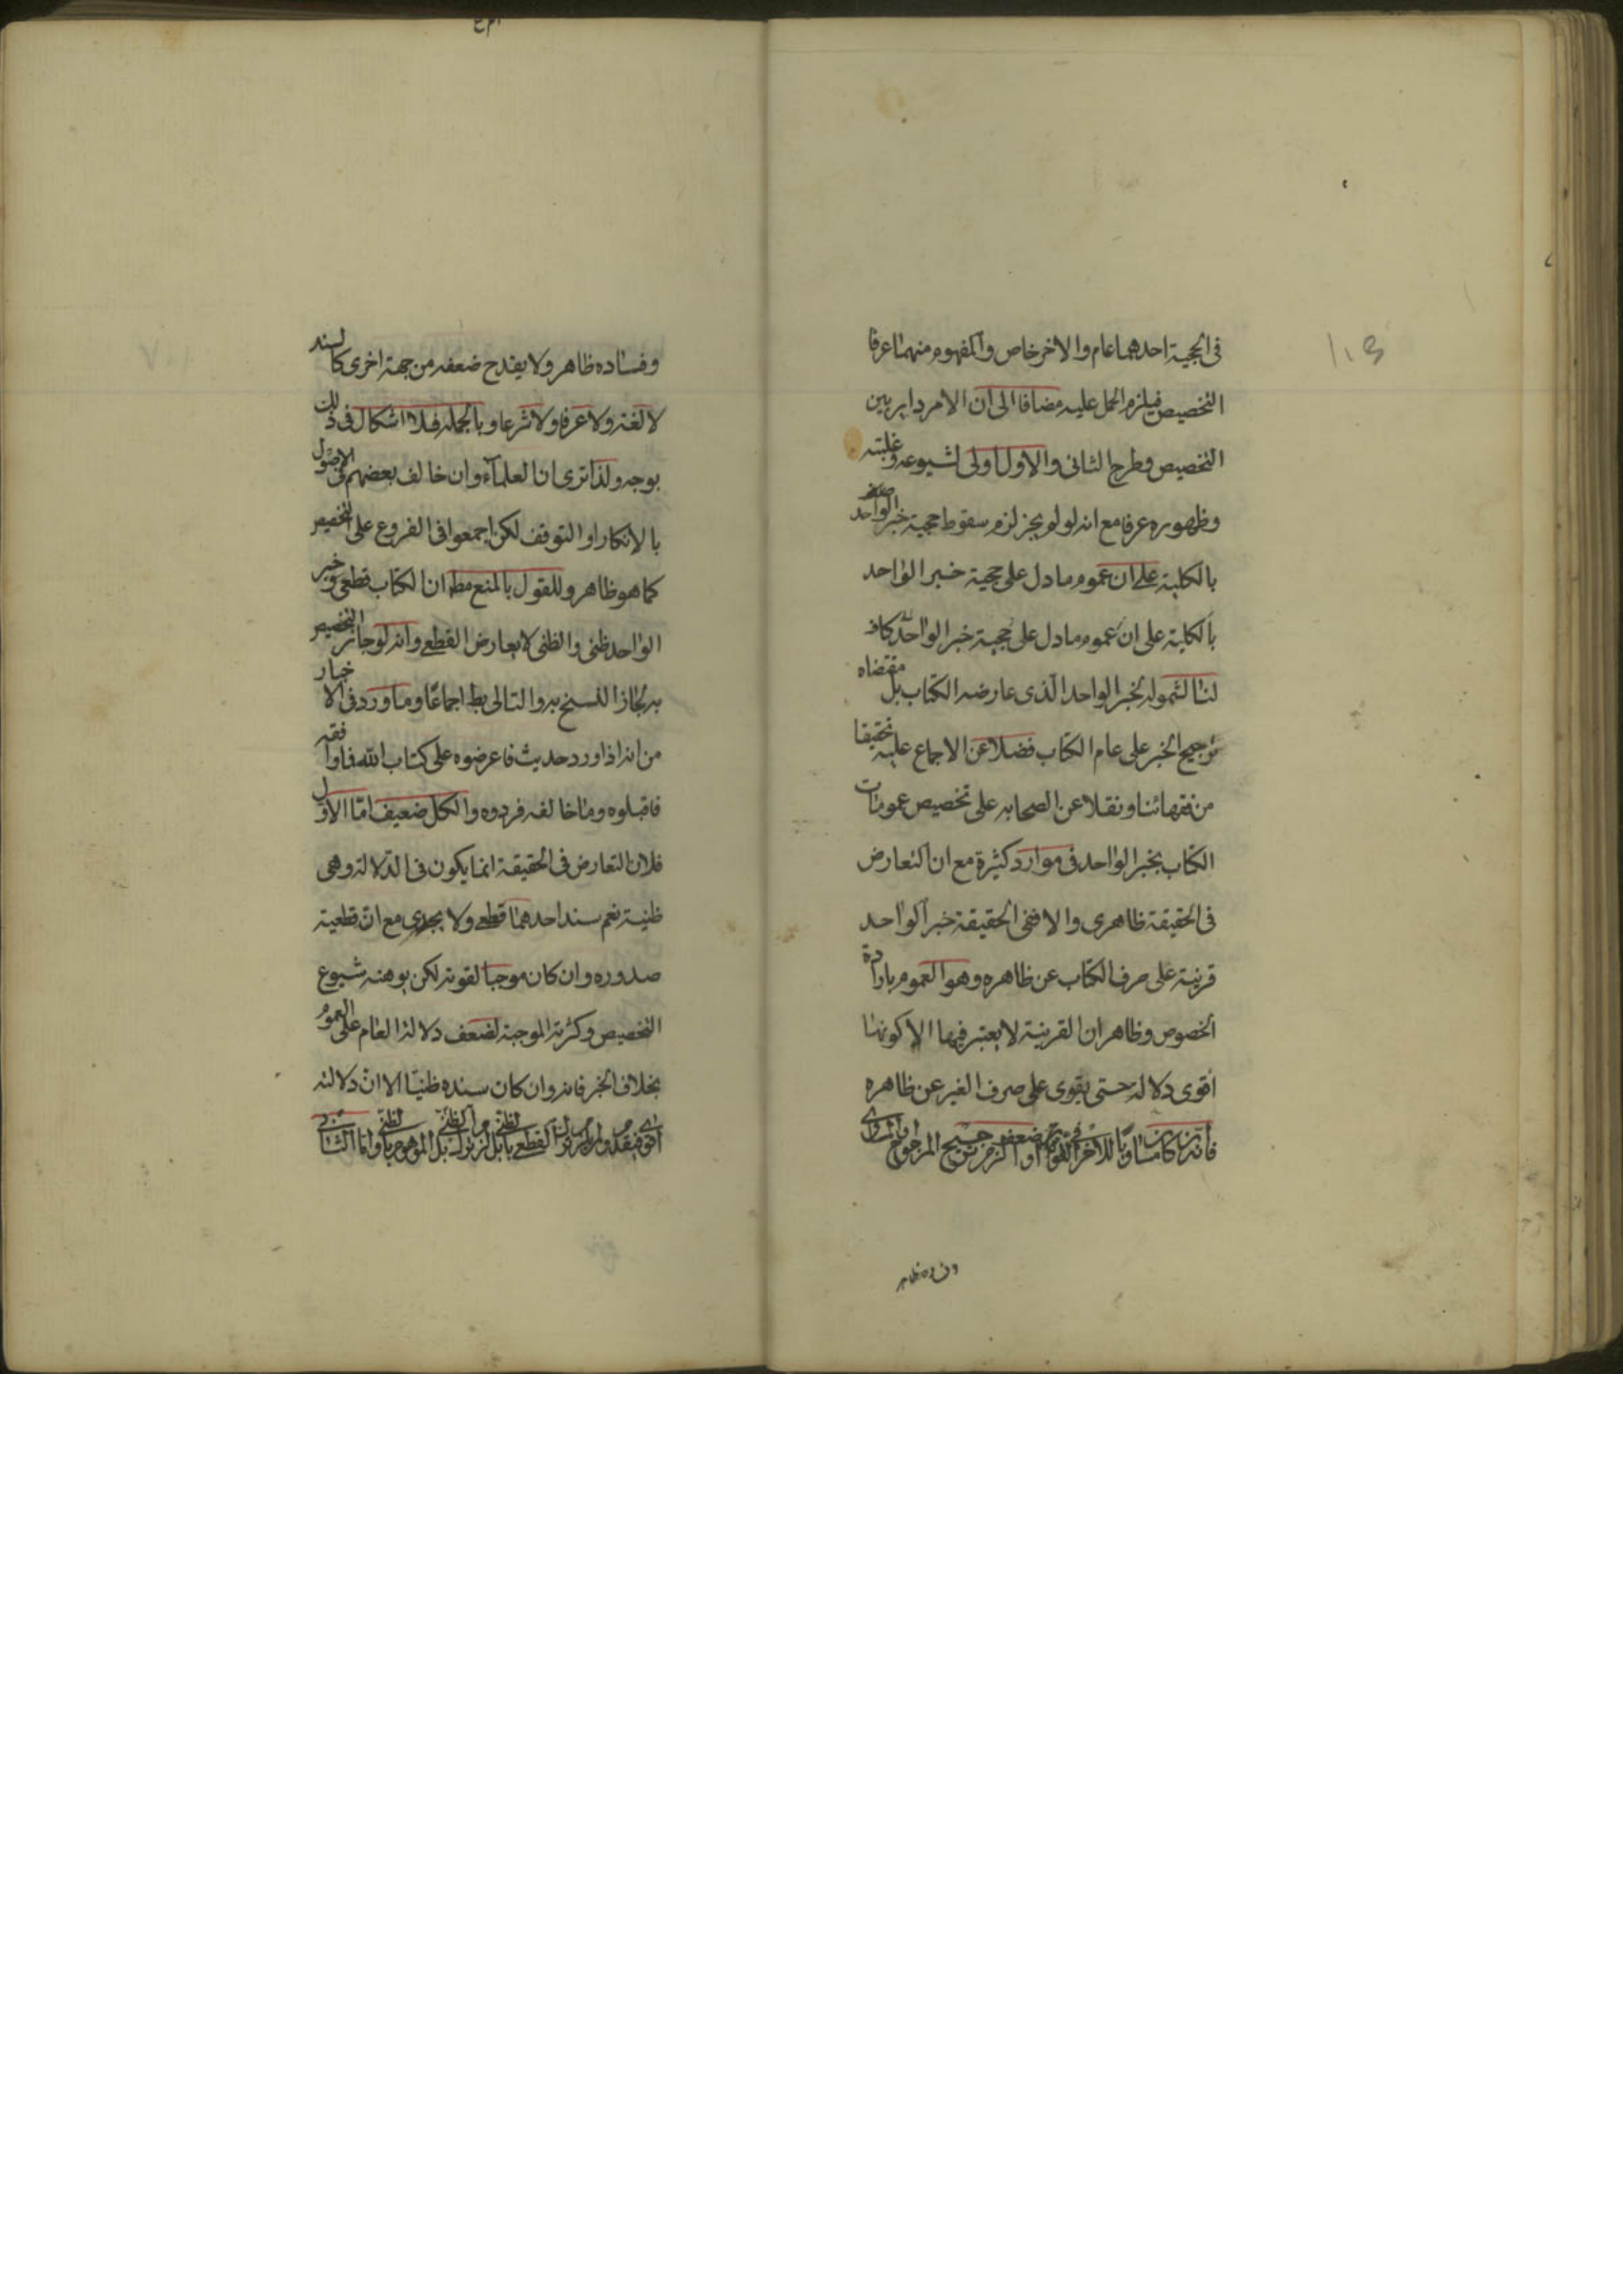 فى الحجية احدهما عام والاخر خاص والمفهوم منهما عرفا
التخصيص فيلزم الحمل عليه مضافا الى ان الامر داير بين
التخصيص وطرح الثانى والاول اولى لشيوعه وغلبته
وظهوره عرفا مع انه لو لم يجز لزم سقوط حجية خبر الواحد
بالكلية على ان عموم مادل على حجية خبر الواحد
بالكلية على ان عموم مادل على حجية خبر الواحد كاف
لنا لشموله لخبر الواحد الذى عارضه الكتاب بل مقتضاه
ترجيح الخبر على عام الكتاب فضلا عن الاجماع عليه تحقيقا
من فقهائنا ونقلا عن الصحابه على تخصيص عمومات
الكتاب بخبر الواحد فى موارد كثيرة مع ان التعارض
فى الحقيقة ظاهرى والا ففى الحقيقة خبر الواحد
قرينة على صرف الكتاب عن ظاهره وهو العموم بارادة
الخصوص وظاهر ان القرينة لا يعتبر فيها الا كونها
اقوى دلالة حتى يقوى على صرف الغير عن ظاهره
فانه ان كان مساويا للاخر فى القوة او اضعف لزم ترجيح المرجوح او المساوى
وفساده ظاهر
وفساده ظاهر ولا يقدح ضعفه من جهة اخرى كالسند
لا لغة ولا عرفا ولا شرعا وبالجملة فلا اشكال فى ذلك
بوجه ولذا ترى ان العلماء وان خالف بعضهم فى الاصول
بالانكار او التوقف لكن اجمعوا فى الفروع على التخصيص
كما هو ظاهر وللقول بالمنع مط ان الكتاب قطعى وخبر
الواحد ظنى والظنى لا يعارض القطعى وانه لو جاز التخصيص
به لجاز النسخ به والتالى بط اجماعا وما ورد فى الاخبار
من انه اذا ورد حديث فاعرضوه على كتاب الله فما وافقه
فاقبلوه وما خالفه فردوه والكل ضعيف اما الاول
فلان التعارض فى الحقيقة انما يكون فى الدلالة وهى
ظنية نعم سند احدهما قطعى ولا يجدى مع ان قطعية
صدوره وان كان موجبا لقوته لكن يوهنه شيوع
التخصيص وكثرته الموجبة لضعف دلالة العام على العموم
بخلاف الخبر فانه وان كان سنده ظنيا الا ان دلالته
اقوى فيقدم ولم يلزم ترك القطعى بالظنى بل لزم ترك الظنى بل الموهوم بالظنى واما الثانى